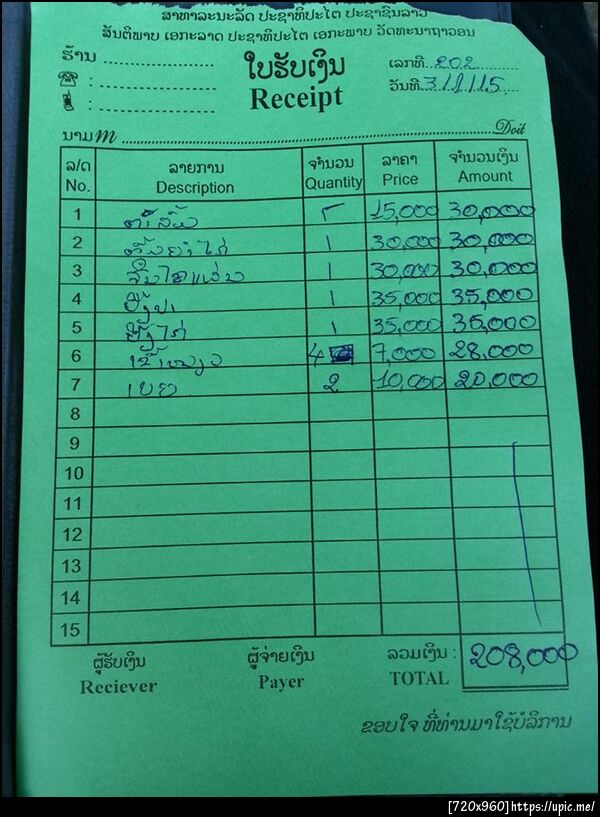 ສາທາລະນະລັດ ປະຊາທິປະໄຕ ປະຊາຊົນລາວ
ສັນຕິພາບ ເອກະລາດ ປະຊາທິປະໄຕ ເອກະພາບ ວັດທະນາຖາວອນ
ຮ້ານ
ໃບຮັບເງິນ
Receipt
ເລກທີ 202
ວັນທີ 31/1/15
ນາມ M Doit
ລ/ດ No. ລາຍການ Description ຈຳນວນ Quantity ລາຄາ Price ຈຳນວນເງິນ Amount
1 15,000 30,000
2 1 30,000 30,000
3 1 30,000 30,000
4 ປີ້ງປາ 1 35,000 35,000
5 ປີ້ງໄກ່ 1 35,000 35,000
6 ເຂົ້າໜຽວ 4 7,000 28,000
7 ເບຍ 2 10,000 20,000
8
9
10
11
12
13
14
15
ຜູ້ຮັບເງິນ ຜູ້ຈ່າຍເງິນ ລວມເງິນ :
Reciever Payer TOTAL 208,000
ຂອບໃຈ ທີ່ທ່ານມາໃຊ້ບໍລິການ
[720x960]https://upic.me/